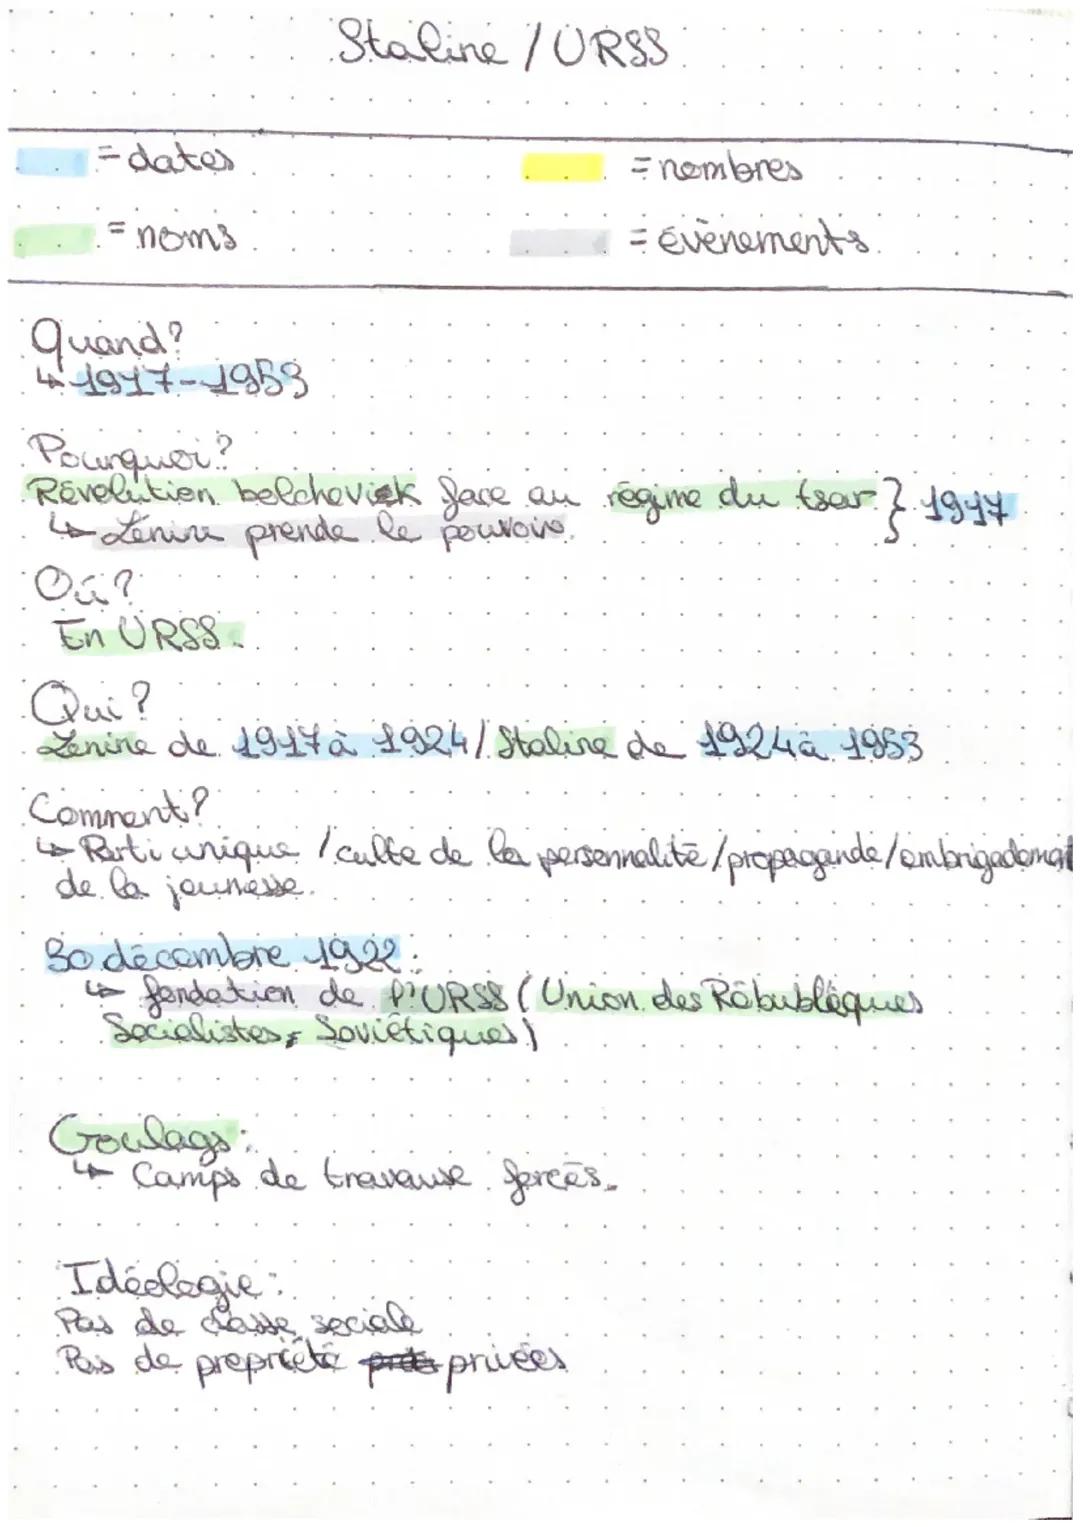 Staline / URSS
= dates
= nombres
= noms
= évènements
Quand?
↳ 1917-1953
Pourquoi?
Révolution bolchevick face au régime du tsar } 1917
↳ Lénine prende le pouvoir.
Où?
En URSS.
Qui?
Lénine de 1917 à 1924 / Staline de 1924 à 1953
Comment?
↳ Parti unique / culte de la personnalité / propagande / embrigadement
de la jeunesse.
30 décembre 1922:
↳ fondation de l'URSS (Union des Rébubliques
Socialistes Soviétiques)
Goulags:
↳ Camps de travause forcés.
Idéologie:
Pas de classe sociale
Pas de propriété privées